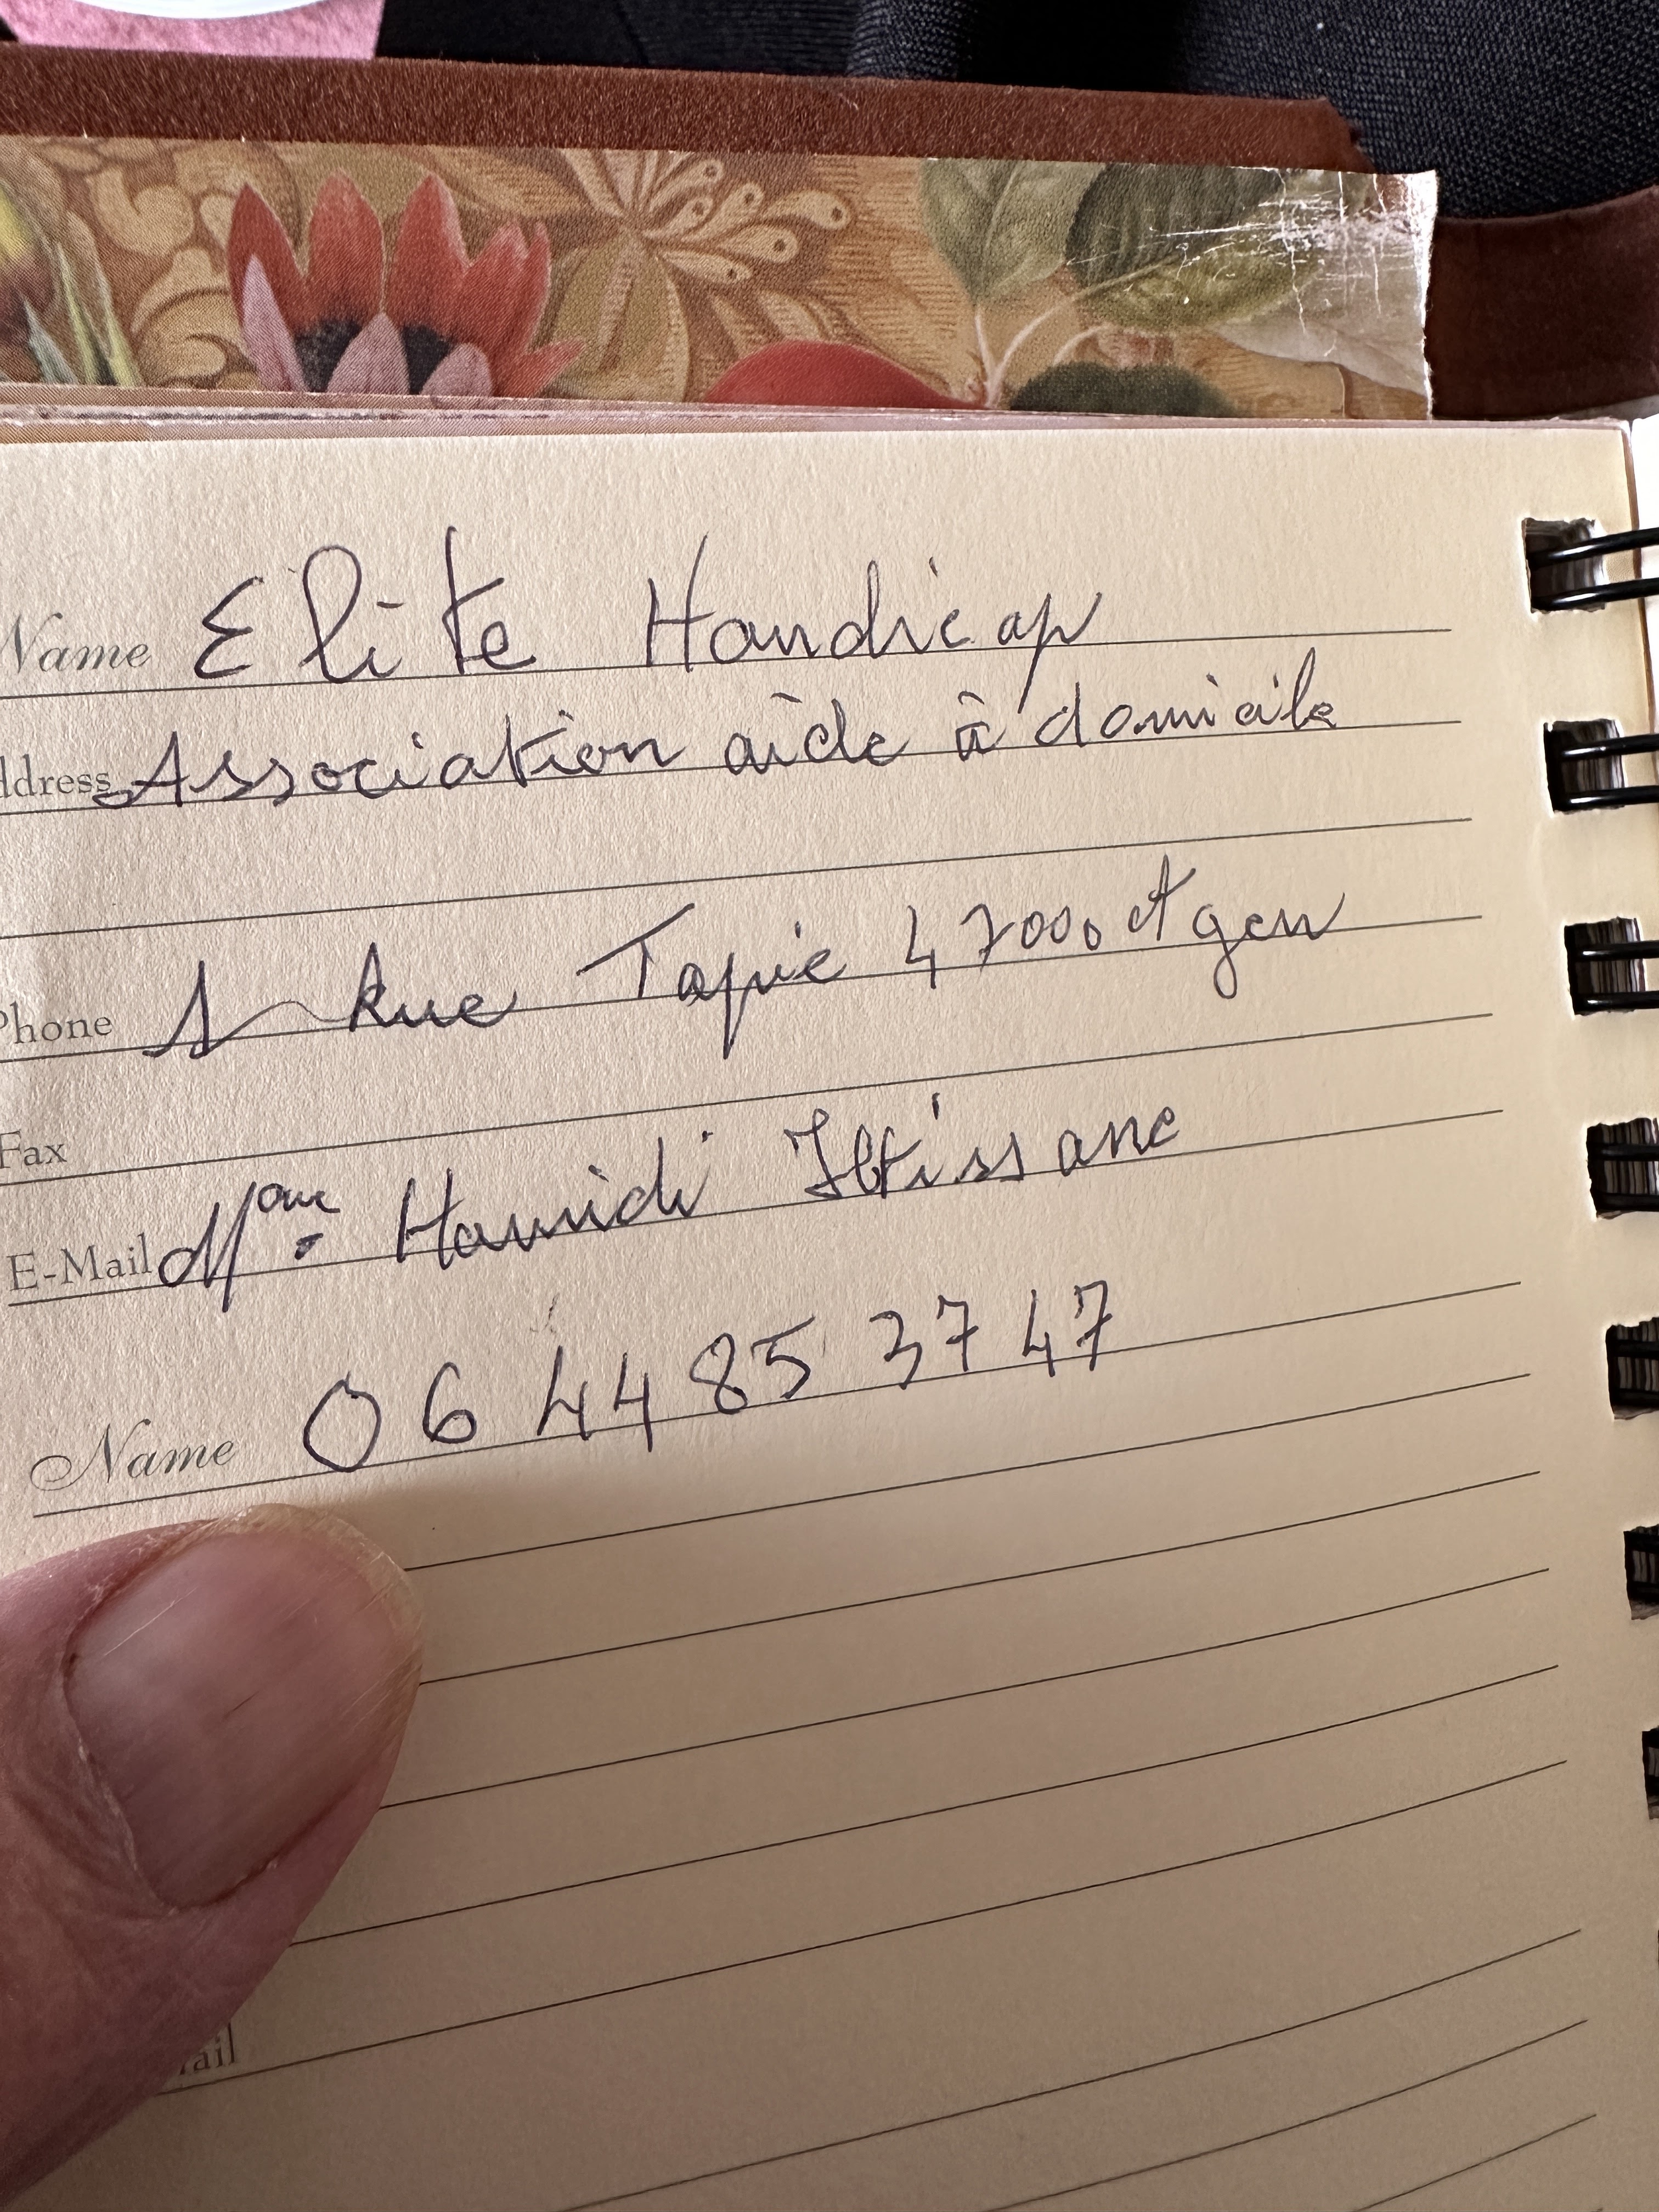 Name Elite Handicap
ddress Association aide à domicile
Phone 1 Rue Tapie 47000 Agen
Fax
E-Mail Mme. Hamidi Ibtissane
Name 06 44 85 37 47
ail